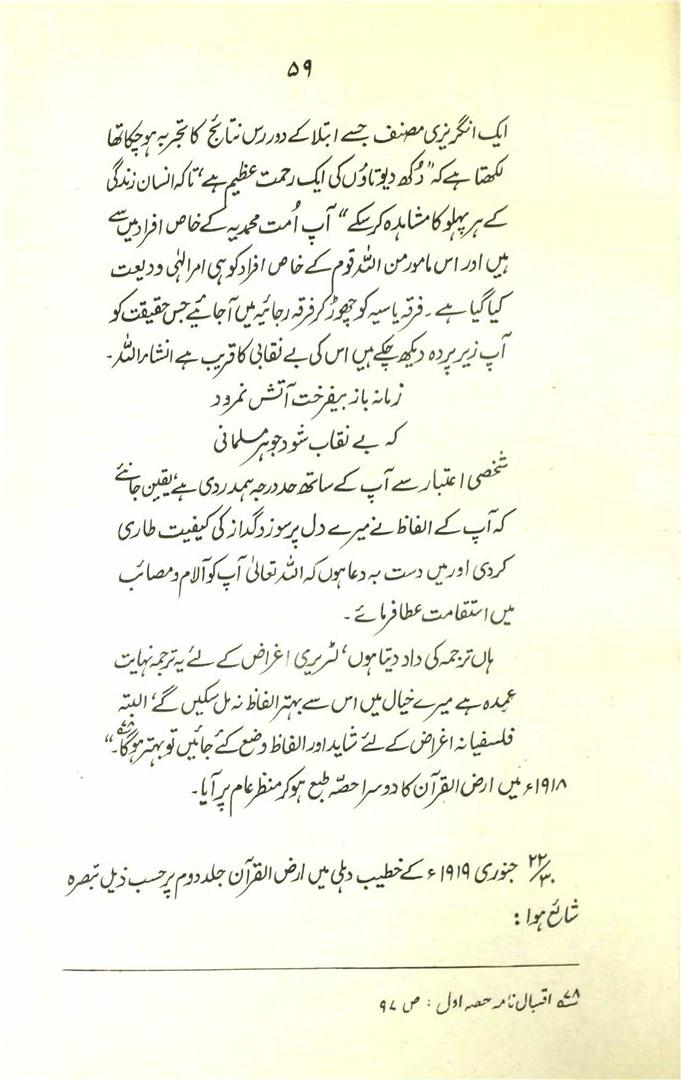 ۵۹
ایک انگریزی مصنف جسے ابتلا کے دور رس نتائج کا تجربہ ہو چکا تھا
لکھتا ہے کہ "دُکھ دیوتاؤں کی ایک رحمت عظیم ہے، تاکہ انسان زندگی
کے ہر پہلو کا مشاہدہ کر سکے" آپ اُمت محمدیہ کے خاص افراد میں سے
ہیں اور اس مامور من اللہ قوم کے خاص افراد کو ہی امر الٰہی ودیعت
کیا گیا ہے۔ فرقہ یاسیہ کو چھوڑ کر فرقہ رجائیہ میں آجائیے جس حقیقت کو
آپ زیر پردہ دیکھ چکے ہیں اس کی بے نقابی کا قریب ہے انشاء اللہ۔
زمانہ باز بیفرخت آتش نمرود
کہ بے نقاب شود جوہر مسلمانی
شخصی اعتبار سے آپ کے ساتھ حد درجہ ہمدردی ہے، یقین جانئے
کہ آپ کے الفاظ نے میرے دل پر سوز و گداز کی کیفیت طاری
کر دی اور میں دست بہ دعا ہوں کہ اللہ تعالیٰ آپ کو آلام و مصائب
میں استقامت عطا فرمائے۔
ہاں ترجمہ کی داد دیتا ہوں، لٹریری اغراض کے لئے یہ ترجمہ نہایت
عمدہ ہے میرے خیال میں اس سے بہتر الفاظ نہ مل سکیں گے، البتہ
فلسفیانہ اغراض کے لئے شاید اور الفاظ وضع کئے جائیں تو بہتر ہو گا۔"۷۸
۱۹۱۸ء میں ارض القرآن کا دوسرا حصّہ طبع ہو کر منظر عام پر آیا۔
۲۲/۳۰ جنوری ۱۹۱۹ء کے خطیب دہلی میں ارض القرآن جلد دوم پر حسب ذیل تبصرہ
شائع ہوا:
۷۸ اقبال نامہ حصہ اول: ص ۹۷